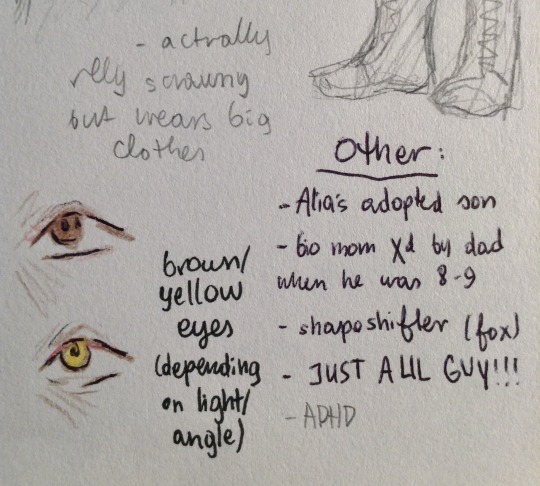 - actually
rlly scrawny
but wears big
clothes
Other:
- Alia's adopted son
- bio mom X'd by dad
when he was 8-9
- shapeshifter (fox)
- JUST A LIL GUY!!!
- ADHD
brown/
yellow
eyes
(depending
on light/
angle)